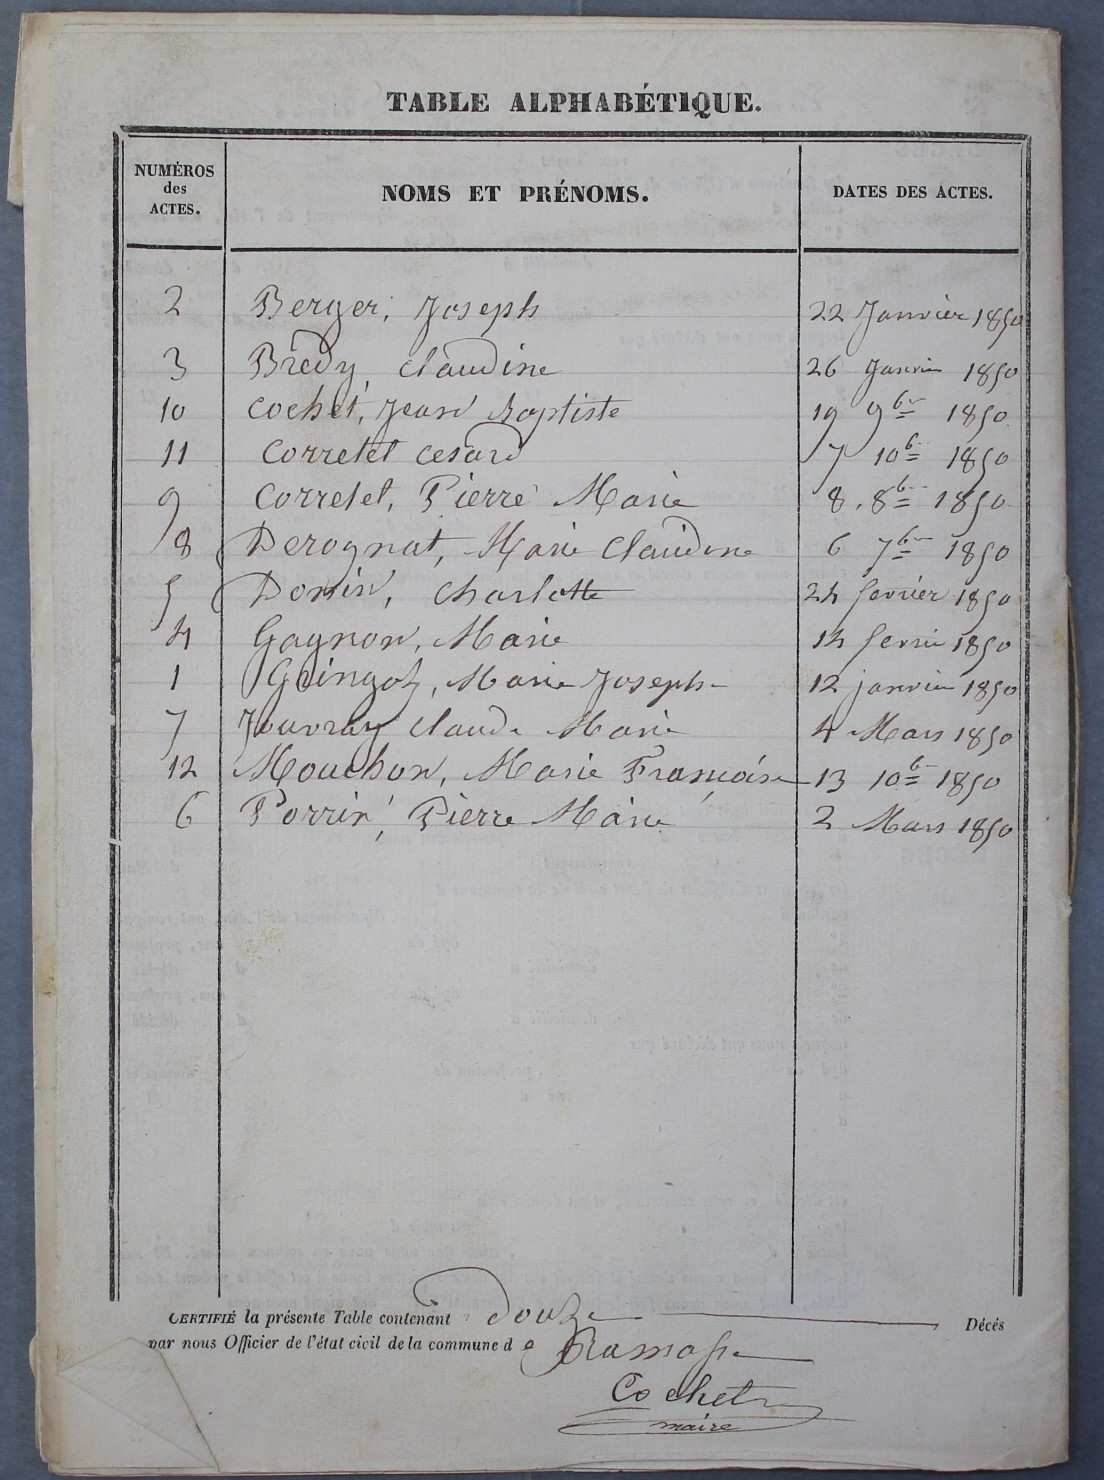 TABLE ALPHABÉTIQUE.
NUMÉROS des ACTES. NOMS ET PRÉNOMS. DATES DES ACTES.
2 Berger, Joseph 22 Janvier 1850
3 Bredy, Claudine 26 Janvier 1850
10 Cochet, Jean Baptiste 19 9bre 1850
11 Corretel Cesard 7 10bre 1850
9 Corretel, Pierre Marie 8. 8bre 1850
8 Derognat, Marie Claudine 6 7bre 1850
5 Donin, Charlotte 24 fevrier 1850
4 Gagnon, Marie 14 fevrier 1850
1 Guingot, Marie Joseph 12 janvier 1850
7 Jouvray Claude Marie 4 Mars 1850
12 Mouchon, Marie Françoise 13 10bre 1850
6 Perrin, Pierre Marie 2 Mars 1850
CERTIFIÉ la présente Table contenant douze Décés
par nous Officier de l'état civil de la commune de Ramasse
Cochet
maire